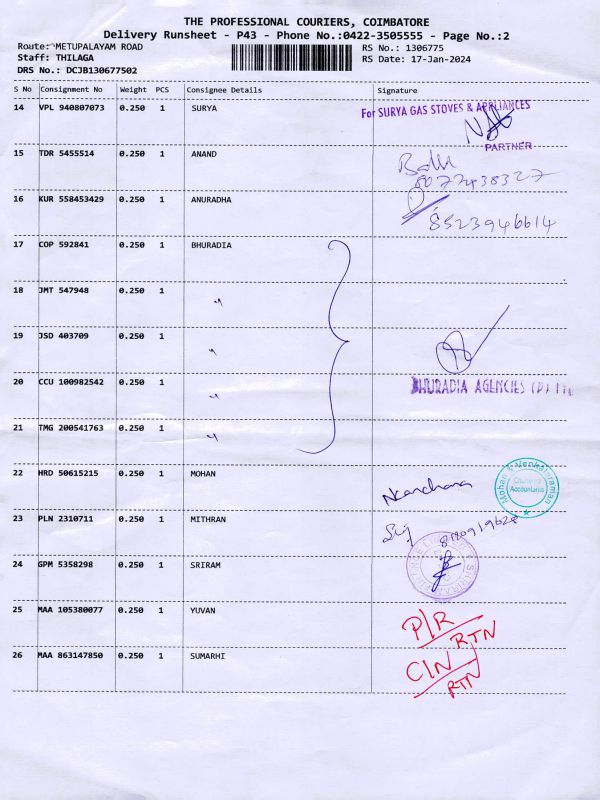 THE PROFESSIONAL COURIERS, COIMBATORE
Delivery Runsheet - P43 - Phone No.:0422-3505555 - Page No.:2
Route: METUPALAYAM ROAD RS No.: 1306775
Staff: THILAGA RS Date: 17-Jan-2024
DRS No.: DCJB130677502
S No Consignment No Weight PCS Consignee Details Signature
14 VPL 940807073 0.250 1 SURYA For SURYA GAS STOVES & APPLIANCES
PARTNER
15 TDR 5455514 0.250 1 ANAND
8077438327
16 KUR 558453429 0.250 1 ANURADHA
8523946614
17 COP 592841 0.250 1 BHURADIA
18 JMT 547948 0.250 1 "
19 JSD 403709 0.250 1 "
20 CCU 100982542 0.250 1 " BHURADIA AGENCIES (P)
21 TMG 200541763 0.250 1 "
22 HRD 50615215 0.250 1 MOHAN Mohan & Venkataraman
Chartered
Accountants
23 PLN 2310711 0.250 1 MITHRAN
24 GPM 5358298 0.250 1 SRIRAM
25 MAA 105380077 0.250 1 YUVAN P/R
RTN
26 MAA 863147850 0.250 1 SUMARHI C/N
RTN